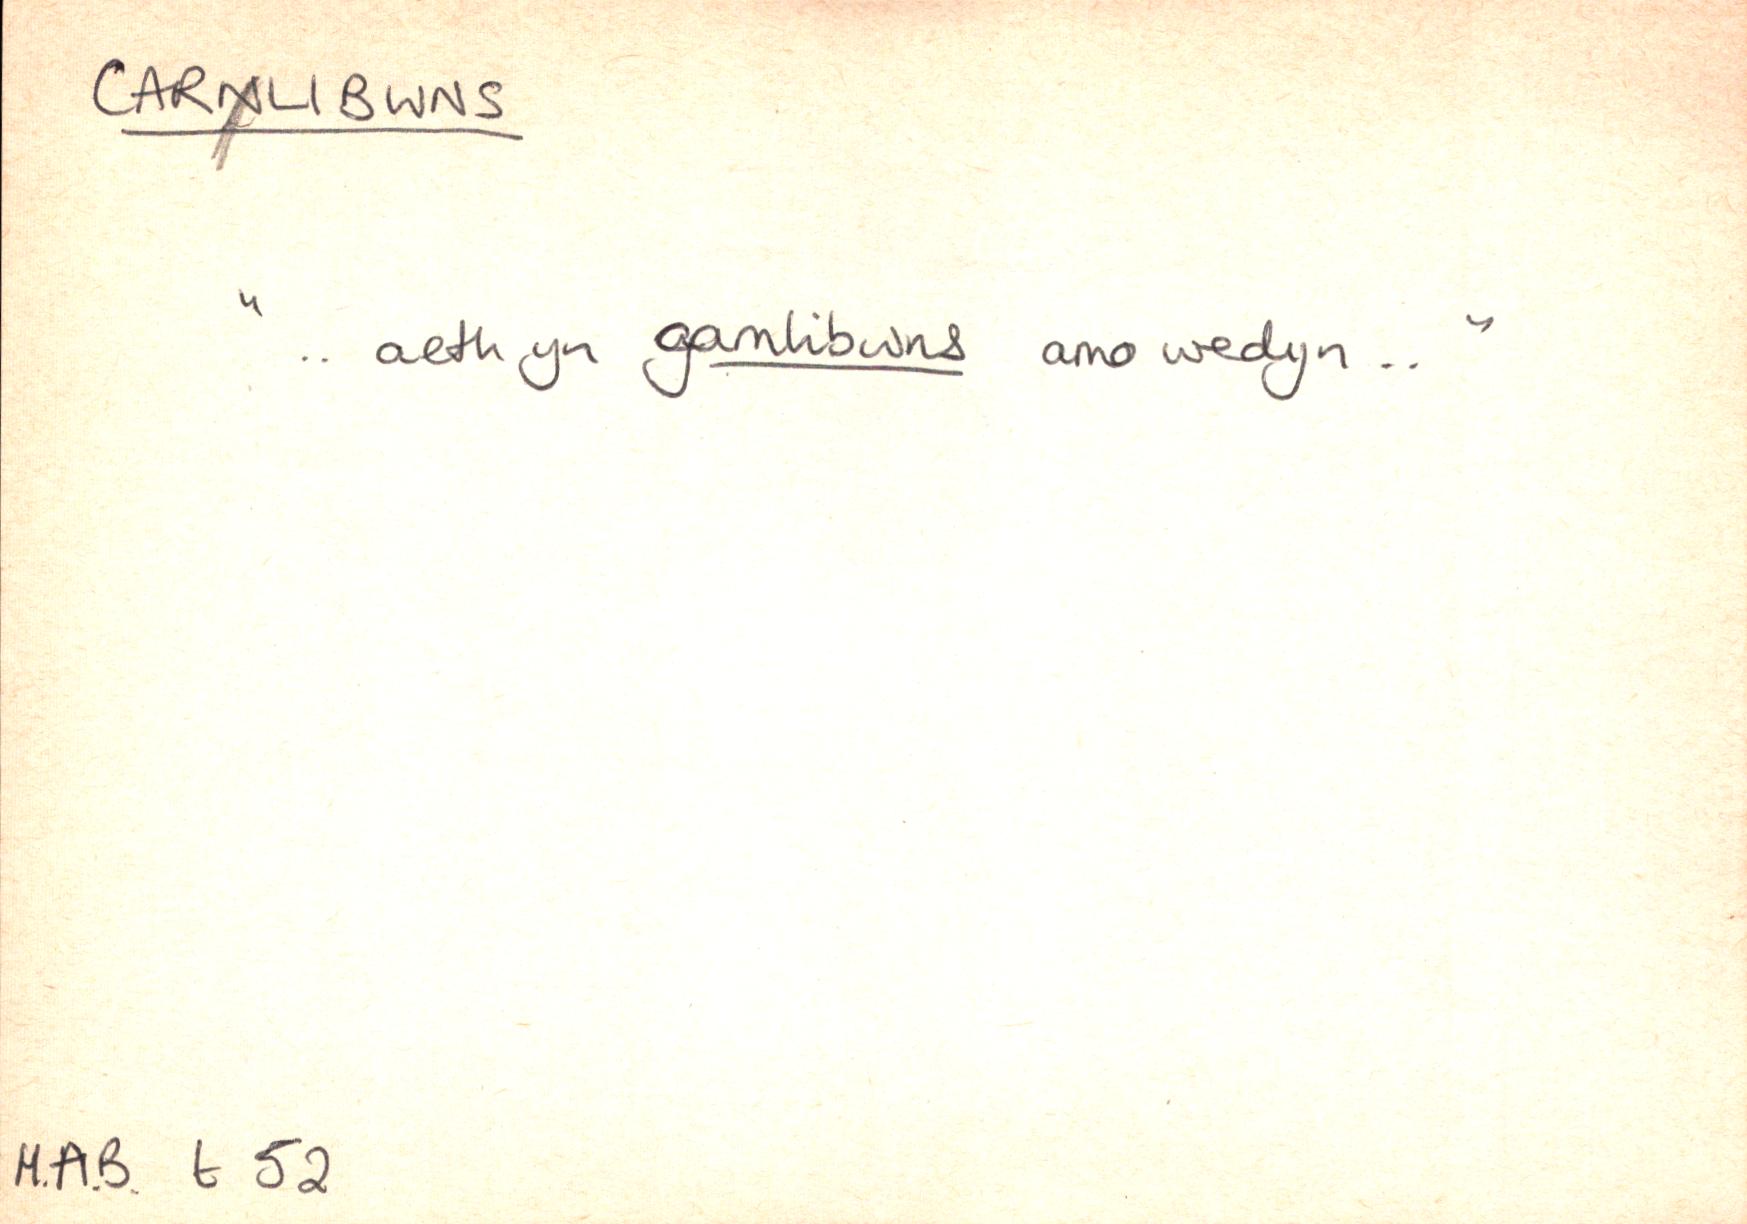 CARNLIBWNS
".. aeth yn garnlibwns arno wedyn .."
H.A.B. t 52